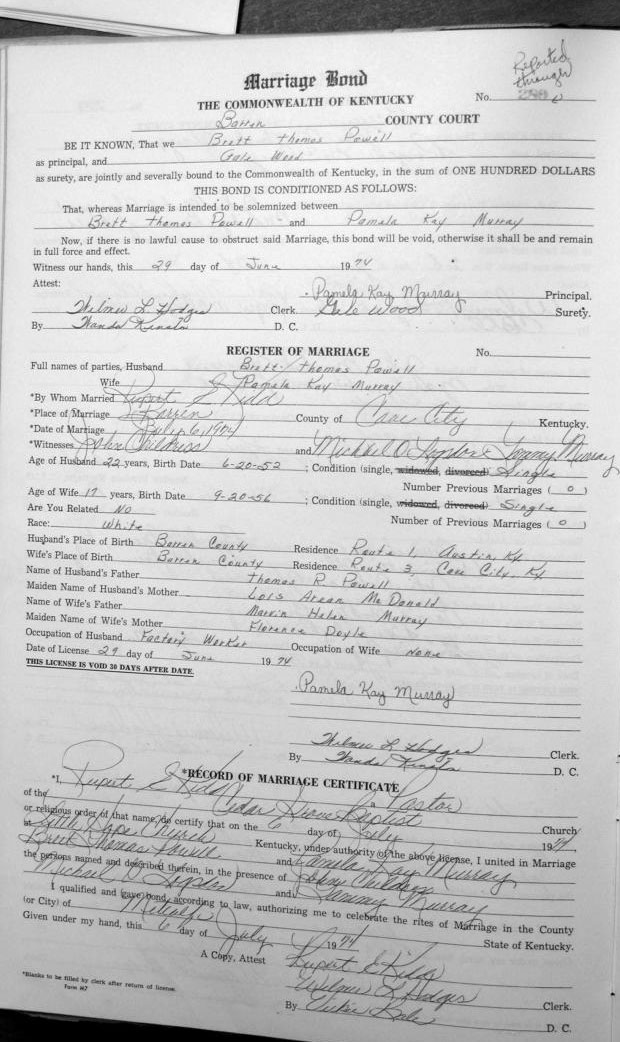 Reported
through
Marriage Bond
No.
THE COMMONWEALTH OF KENTUCKY
Barren COUNTY COURT
BE IT KNOWN, That we Brett Thomas Powell
as principal, and Gale Wood
as surety, are jointly and severally bound to the Commonwealth of Kentucky, in the sum of ONE HUNDRED DOLLARS
THIS BOND IS CONDITIONED AS FOLLOWS:
That, whereas Marriage is intended to be solemnized between
Brett Thomas Powell and Pamela Kay Murray
Now, if there is no lawful cause to obstruct said Marriage, this bond will be void, otherwise it shall be and remain
in full force and effect.
Witness our hands, this 29 day of June 1974
Attest: Pamela Kay Murray Principal.
Wilmer L Hodges Clerk. Gale Wood Surety.
By Wanda D. C.
REGISTER OF MARRIAGE No.
Full names of parties, Husband Brett Thomas Powell
Wife Pamala Kay Murray
*By Whom Married Rupert E Kidd
*Place of Marriage Barren County of Cave City Kentucky.
*Date of Marriage July 6, 1974
*Witnesses John Childress and Michael O. Logsdon Tommy Murray
Age of Husband 22 years, Birth Date 6-20-52; Condition (single, widowed, divorced) Single
Number Previous Marriages (0)
Age of Wife 17 years, Birth Date 9-20-56; Condition (single, widowed, divorced) Single
Are You Related No Number of Previous Marriages (0)
Race: White
Husband's Place of Birth Barren County Residence Route 1, Austin, Ky
Wife's Place of Birth Barren County Residence Route 3, Cave City, Ky
Name of Husband's Father Thomas R Powell
Maiden Name of Husband's Mother Lois McDonald
Name of Wife's Father Marvin Helen Murray
Maiden Name of Wife's Mother Florence Doyle
Occupation of Husband Factory Worker Occupation of Wife None
Date of License 29 day of June 1974
THIS LICENSE IS VOID 30 DAYS AFTER DATE.
Pamela Kay Murray
Wilmer L Hodges Clerk.
By Wanda D. C.
*RECORD OF MARRIAGE CERTIFICATE
*I, Rupert E Kidd a Pastor
of the Cedar Grove Baptist Church
or religious order of that name, do certify that on the 6 day of July 1974
at Little Hope Church Kentucky, under authority of the above license, I united in Marriage
Brett Thomas Powell and Pamela Kay Murray
the persons named and described therein, in the presence of Johny Childress
Michael O Logsdon and Tommy Murray
I qualified and gave bond, according to law, authorizing me to celebrate the rites of Marriage in the County
(or City) of Metcalfe State of Kentucky.
Given under my hand, this 6 day of July 1974
A Copy, Attest Rupert E Kidd
Wilmer L Hodges Clerk.
By Vickie D. C.
*Blanks to be filled by clerk after return of license.
Form